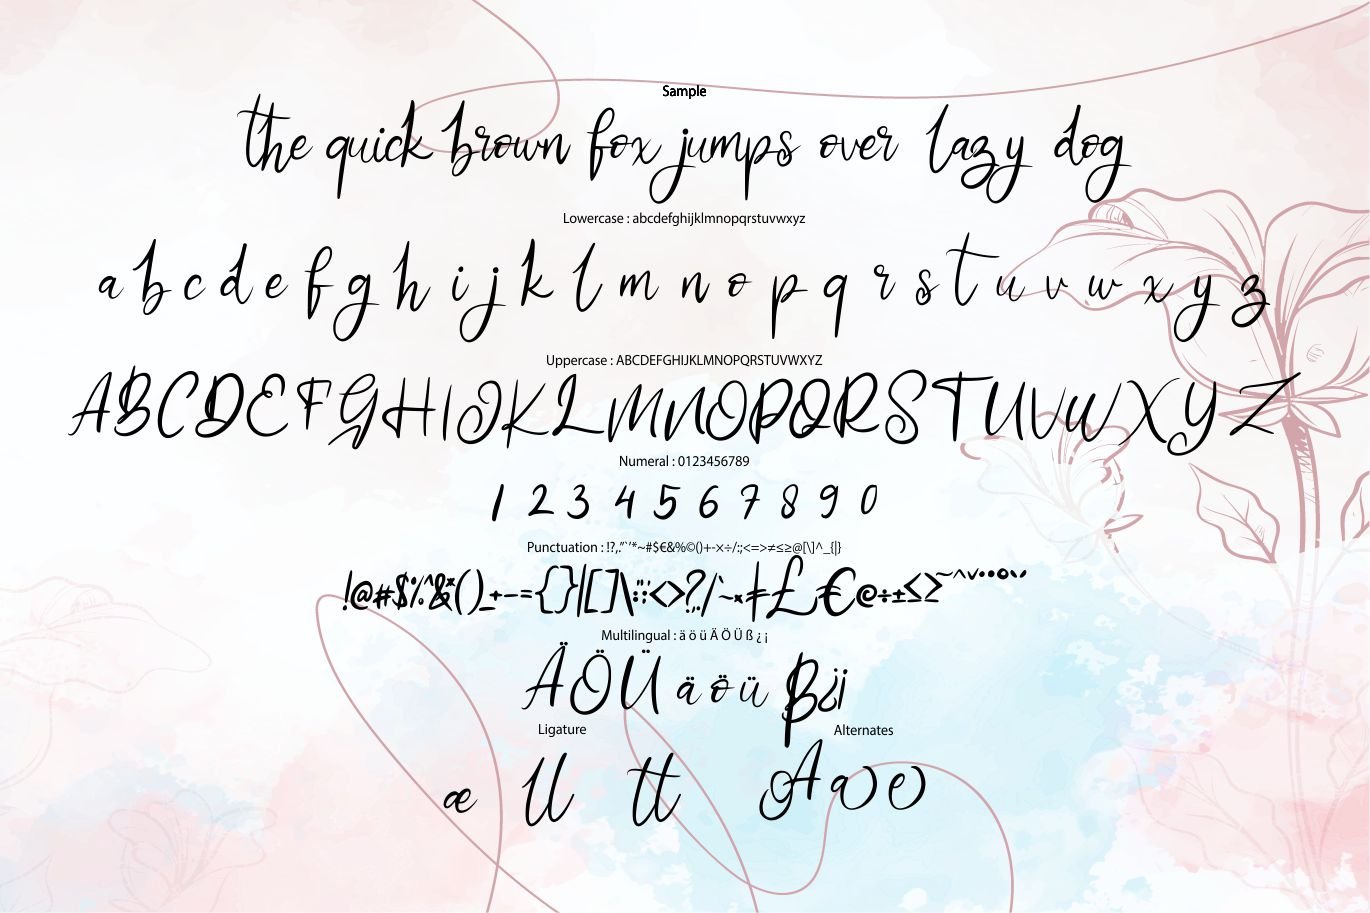 Sample
the quick brown fox jumps over lazy dog
Lowercase : abcdefghijklmnopqrstuvwxyz
a b c d e f g h i j k l m n o p q r s t u v w x y z
Uppercase : ABCDEFGHIJKLMNOPQRSTUVWXYZ
ABCDEFGHIJKLMNOPQRSTUVWXYZ
Numeral : 0123456789
1 2 3 4 5 6 7 8 9 0
Punctuation : !?,.”“’*~#$€&%©()+-×÷/:;<=>≠≤≥@[\]^_{|}
!@#$%^&*()_+-={}|[]\:;<>?/`~×≠£€©÷±≤≥
Multilingual : ä ö ü Ä Ö Ü ß ¿ ¡
ÄÖÜ ä ö ü ß¿¡
Ligature Alternates
æ ll tt A a e